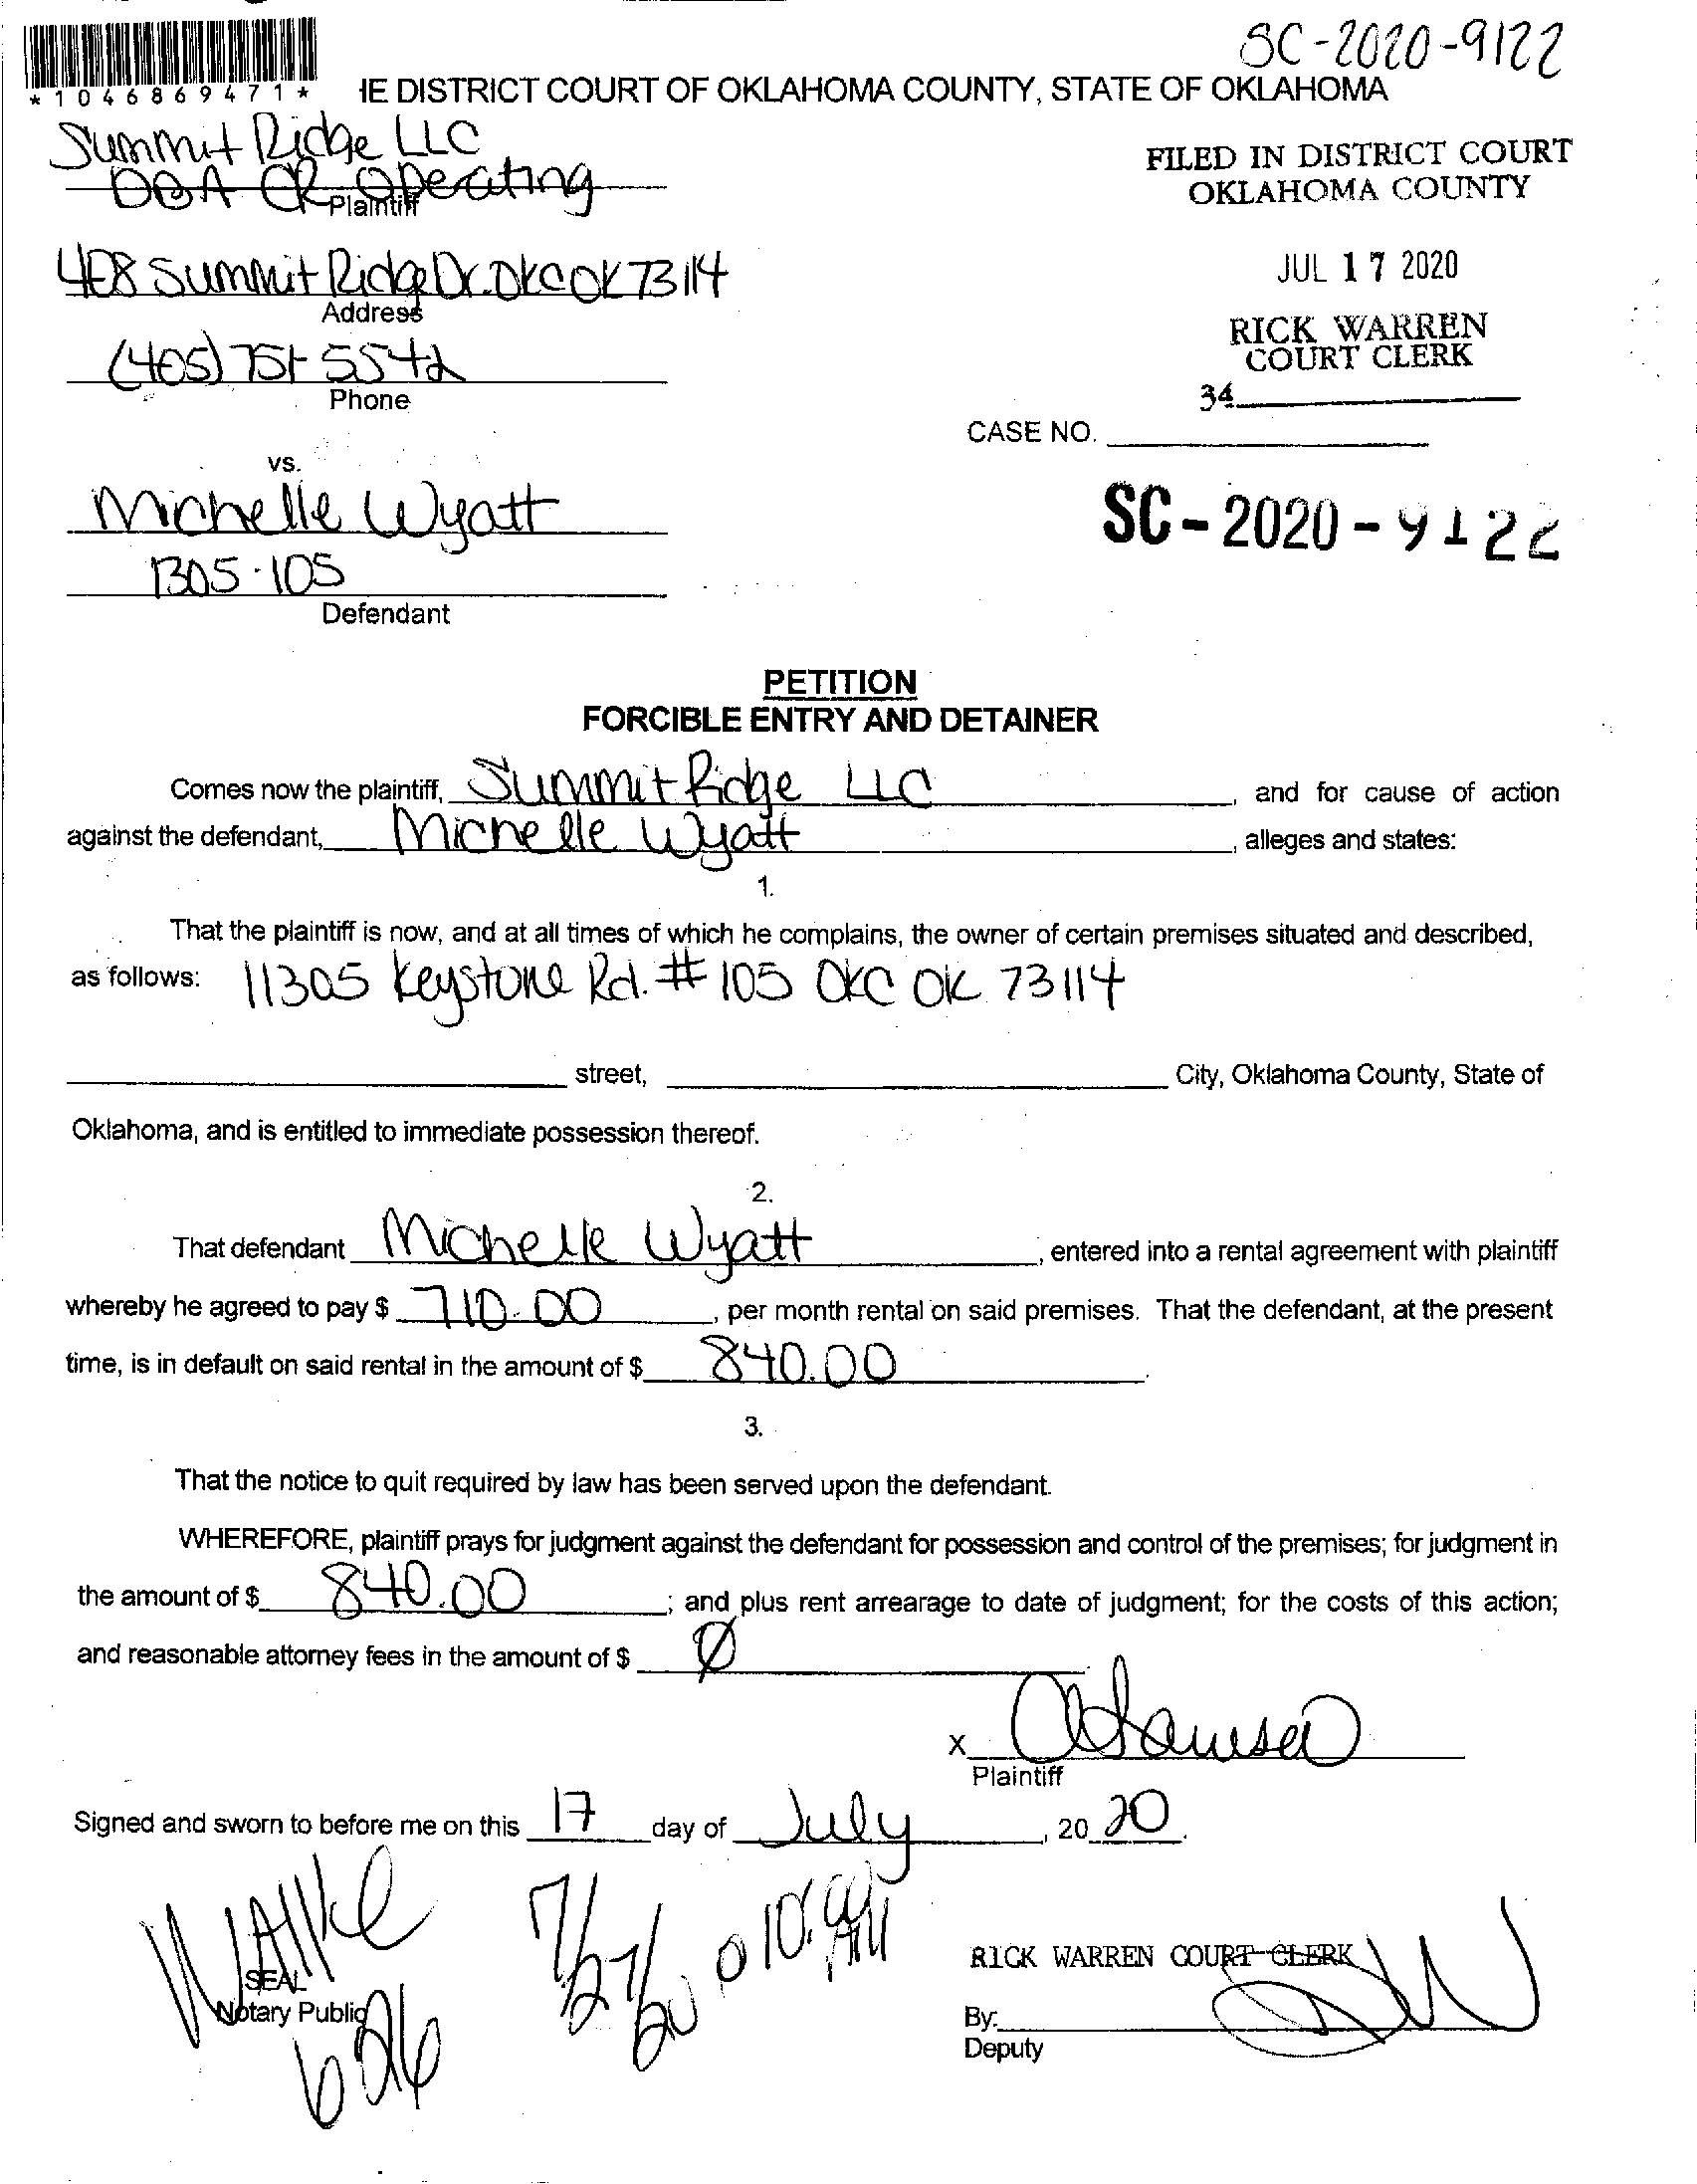 SC-2020-9122
*1046869471*
HE DISTRICT COURT OF OKLAHOMA COUNTY, STATE OF OKLAHOMA
Summit Ridge LLC
DBA CR Operating
Plaintiff
FILED IN DISTRICT COURT
OKLAHOMA COUNTY
408 Summit Ridge Dr. OKC OK 73114
Address
JUL 17 2020
RICK WARREN
COURT CLERK
(405) 751-5542
Phone
34
CASE NO.
vs.
Michelle Wyatt
SC-2020-9122
1305-105
Defendant
PETITION
FORCIBLE ENTRY AND DETAINER
Comes now the plaintiff, Summit Ridge LLC, and for cause of action
against the defendant, Michelle Wyatt, alleges and states:
1.
That the plaintiff is now, and at all times of which he complains, the owner of certain premises situated and described,
as follows: 11305 Keystone Rd. #105 OKC OK 73114
street, City, Oklahoma County, State of
Oklahoma, and is entitled to immediate possession thereof.
2.
That defendant Michelle Wyatt, entered into a rental agreement with plaintiff
whereby he agreed to pay $ 710.00, per month rental on said premises. That the defendant, at the present
time, is in default on said rental in the amount of $ 840.00.
3.
That the notice to quit required by law has been served upon the defendant.
WHEREFORE, plaintiff prays for judgment against the defendant for possession and control of the premises; for judgment in
the amount of $ 840.00; and plus rent arrearage to date of judgment; for the costs of this action;
and reasonable attorney fees in the amount of $ Ø.
X
Plaintiff
Signed and sworn to before me on this 17 day of July, 2020.
7/27/20 @ 10:00 AM
RICK WARREN COURT CLERK
SEAL
Notary Public
By:
Deputy
626